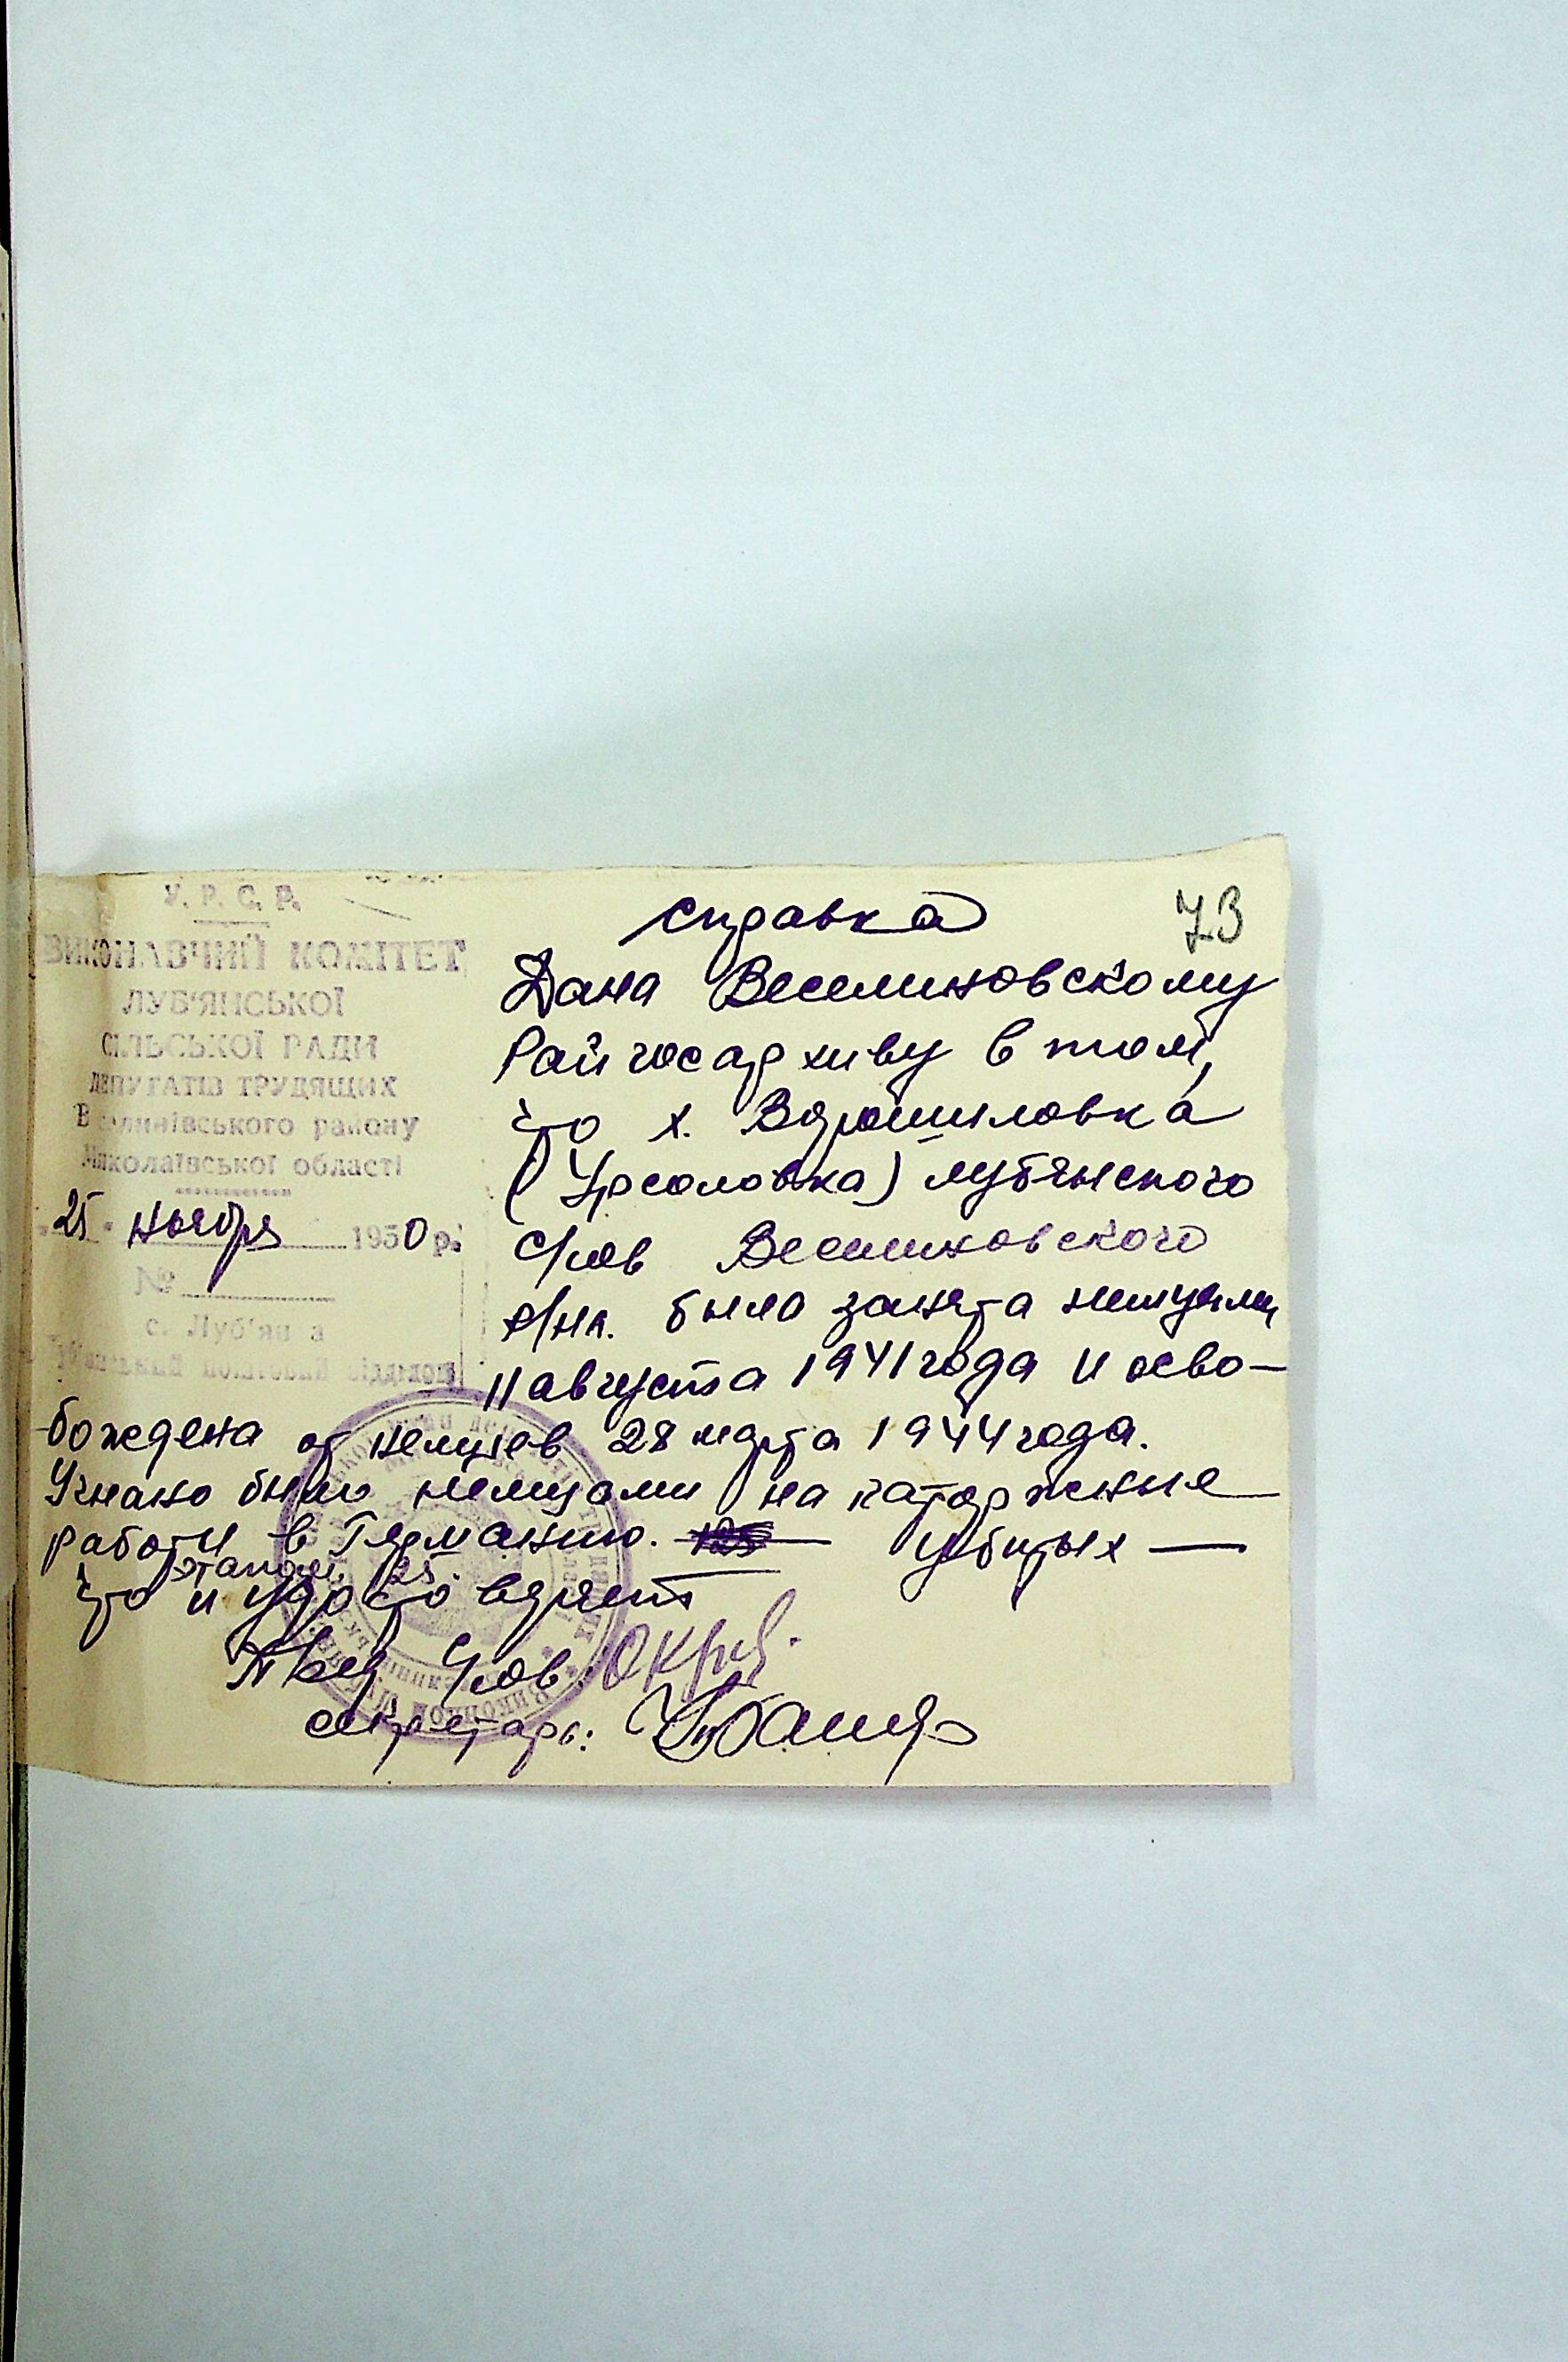 У. Р. С. Р.
ВИКОНАВЧИЙ КОМІТЕТ
ЛУБ'ЯНСЬКОЇ
СІЛЬСЬКОЇ РАДИ
ДЕПУТАТІВ ТРУДЯЩИХ
Веселинівського району
Миколаївської області
"25" ноября 1950 р.
№
с. Луб'янка
73
Справка
Дана Веселиновскому
Райгосархиву в том,
что х. Ворошиловка
(Урсоловка) Лубянского
с/сов Веселиновского
р/на. была занята немцами
11 августа 1941 года и осво-
бождена от немцев 28 марта 1944 года.
Угнано было немцами на каторжные
работы в Германию. — Убитых —
этапом. 25.
что и удостоверяет
Пред с/сов:
секретарь: